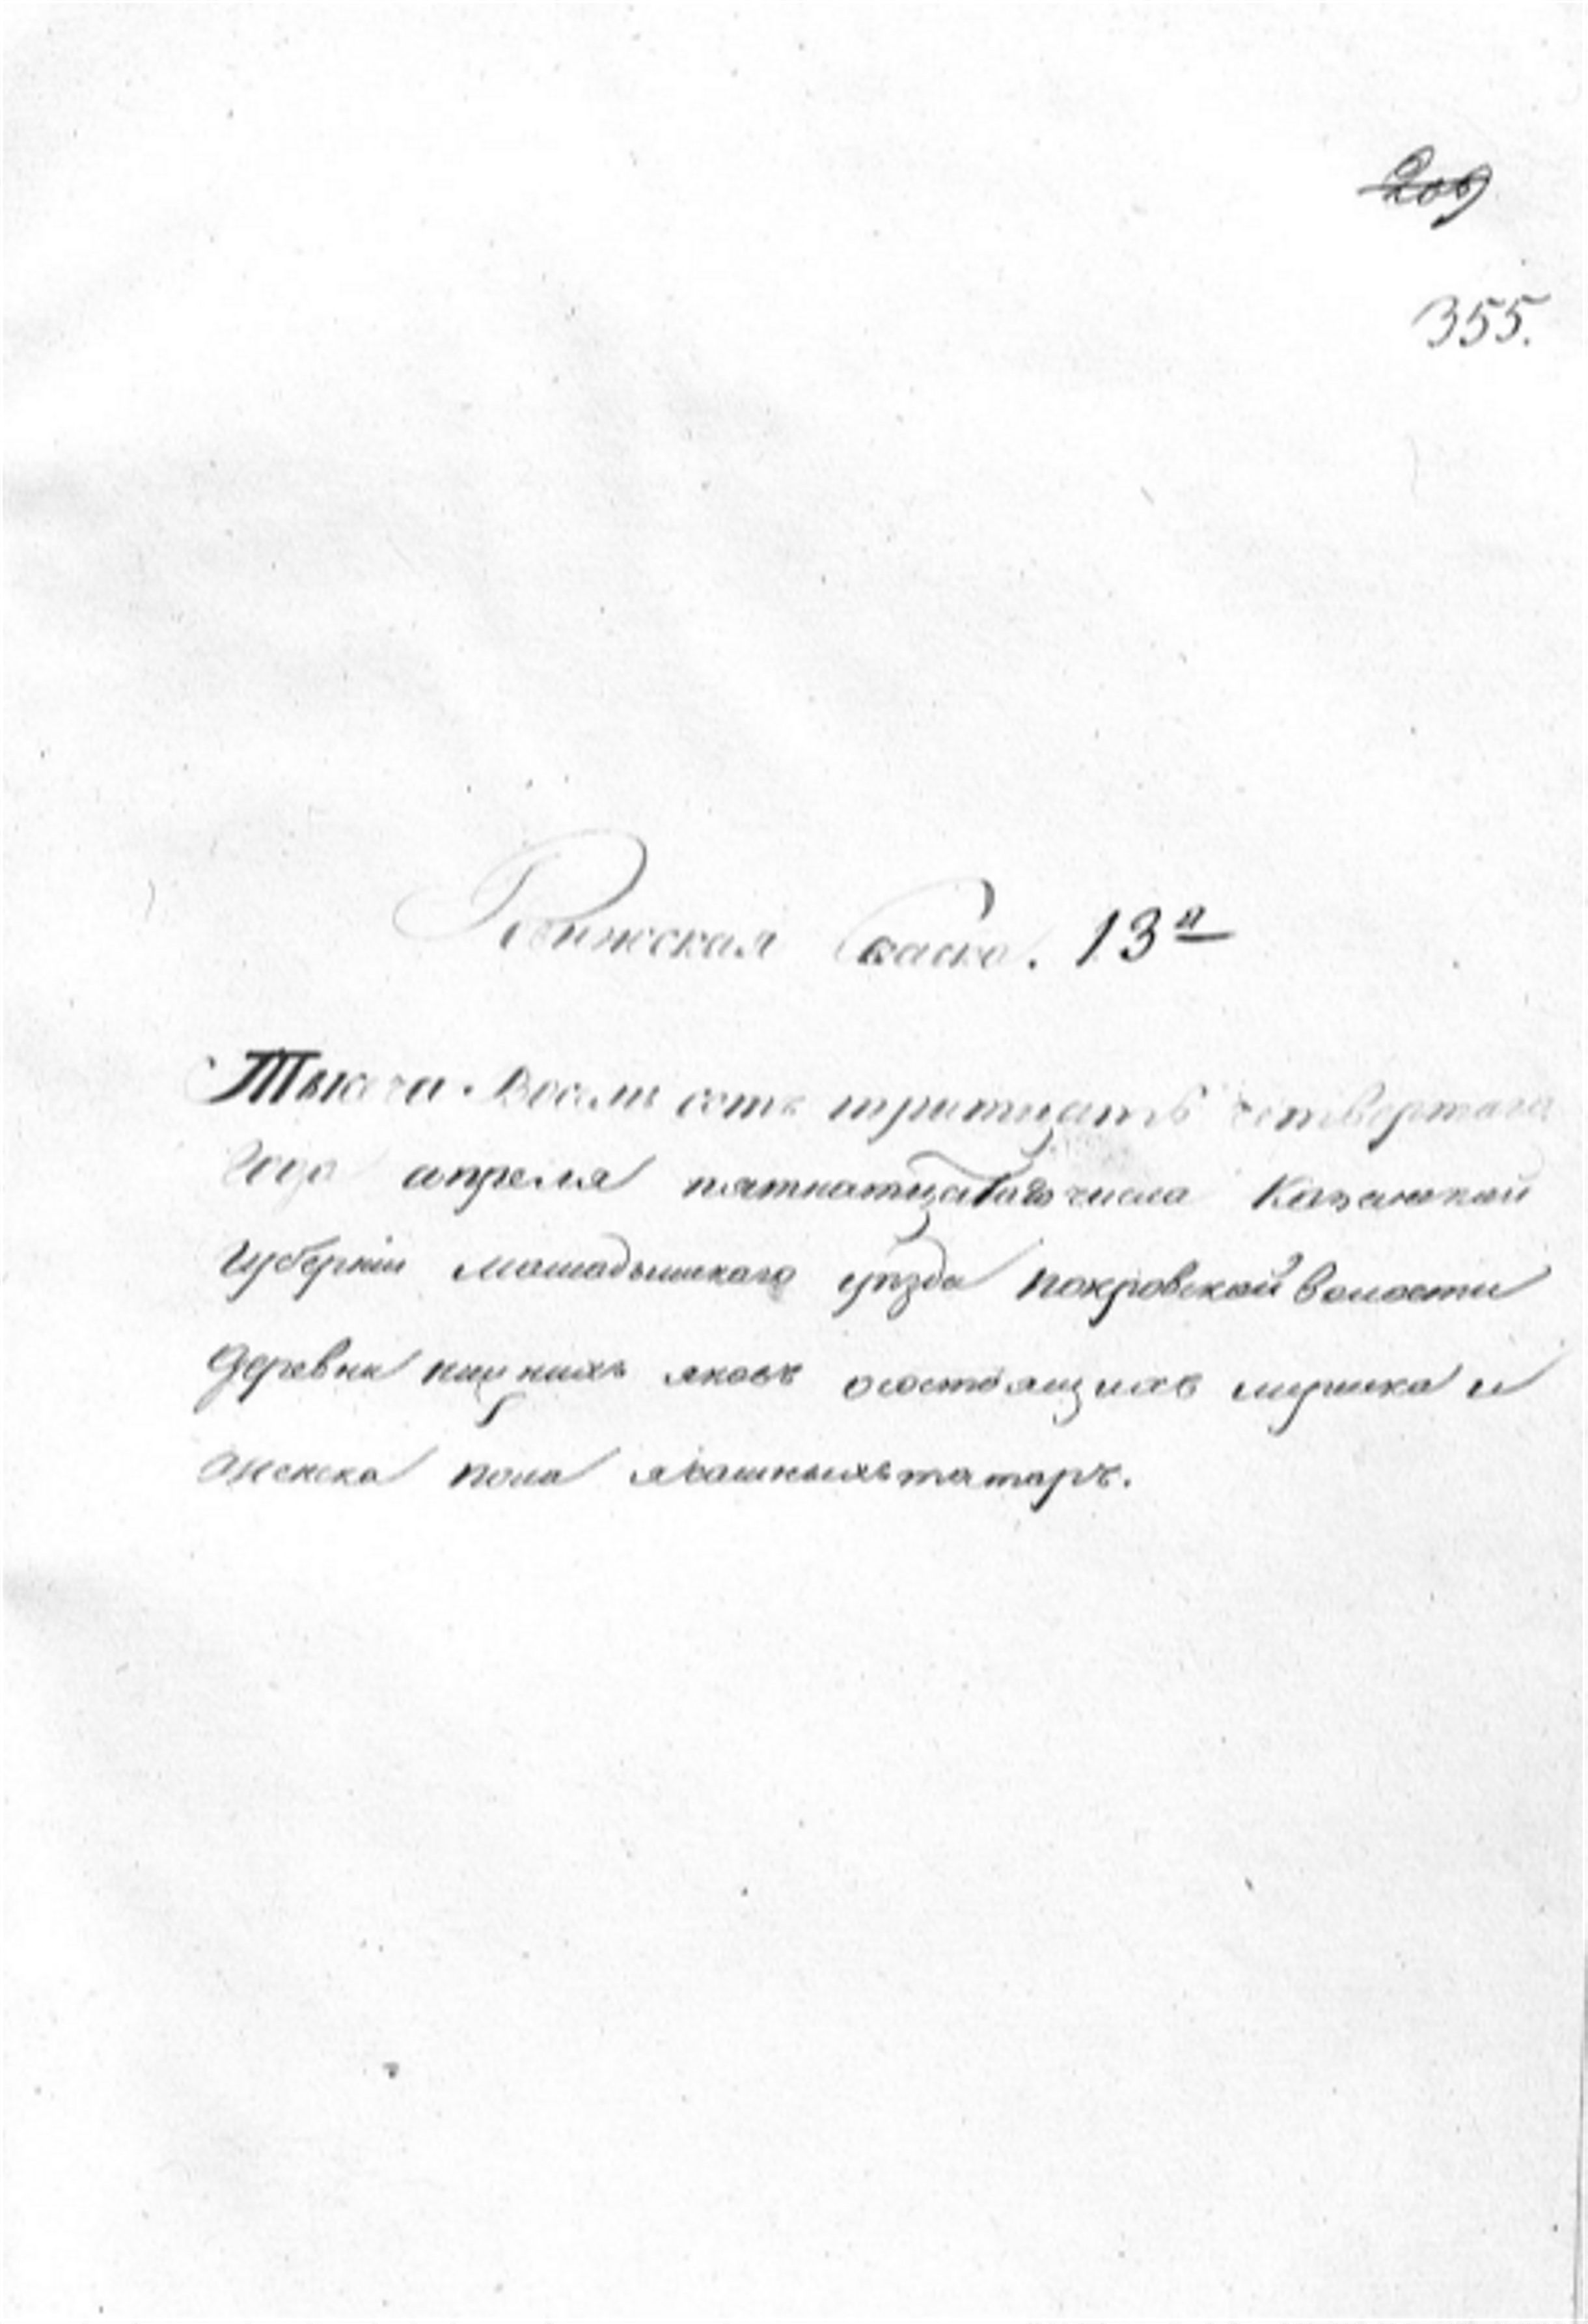 209
355.
Ревижская Скаска. 13я
Тысеча Восемь сотъ тритцать четвертага
года апреля пятнатцатаго числа Казанской
губернiи мамадышскаго уѣзда покровской волости
Деревни яковъ осостоящихъ мушска и
женска пола ясашныхъ татаръ.